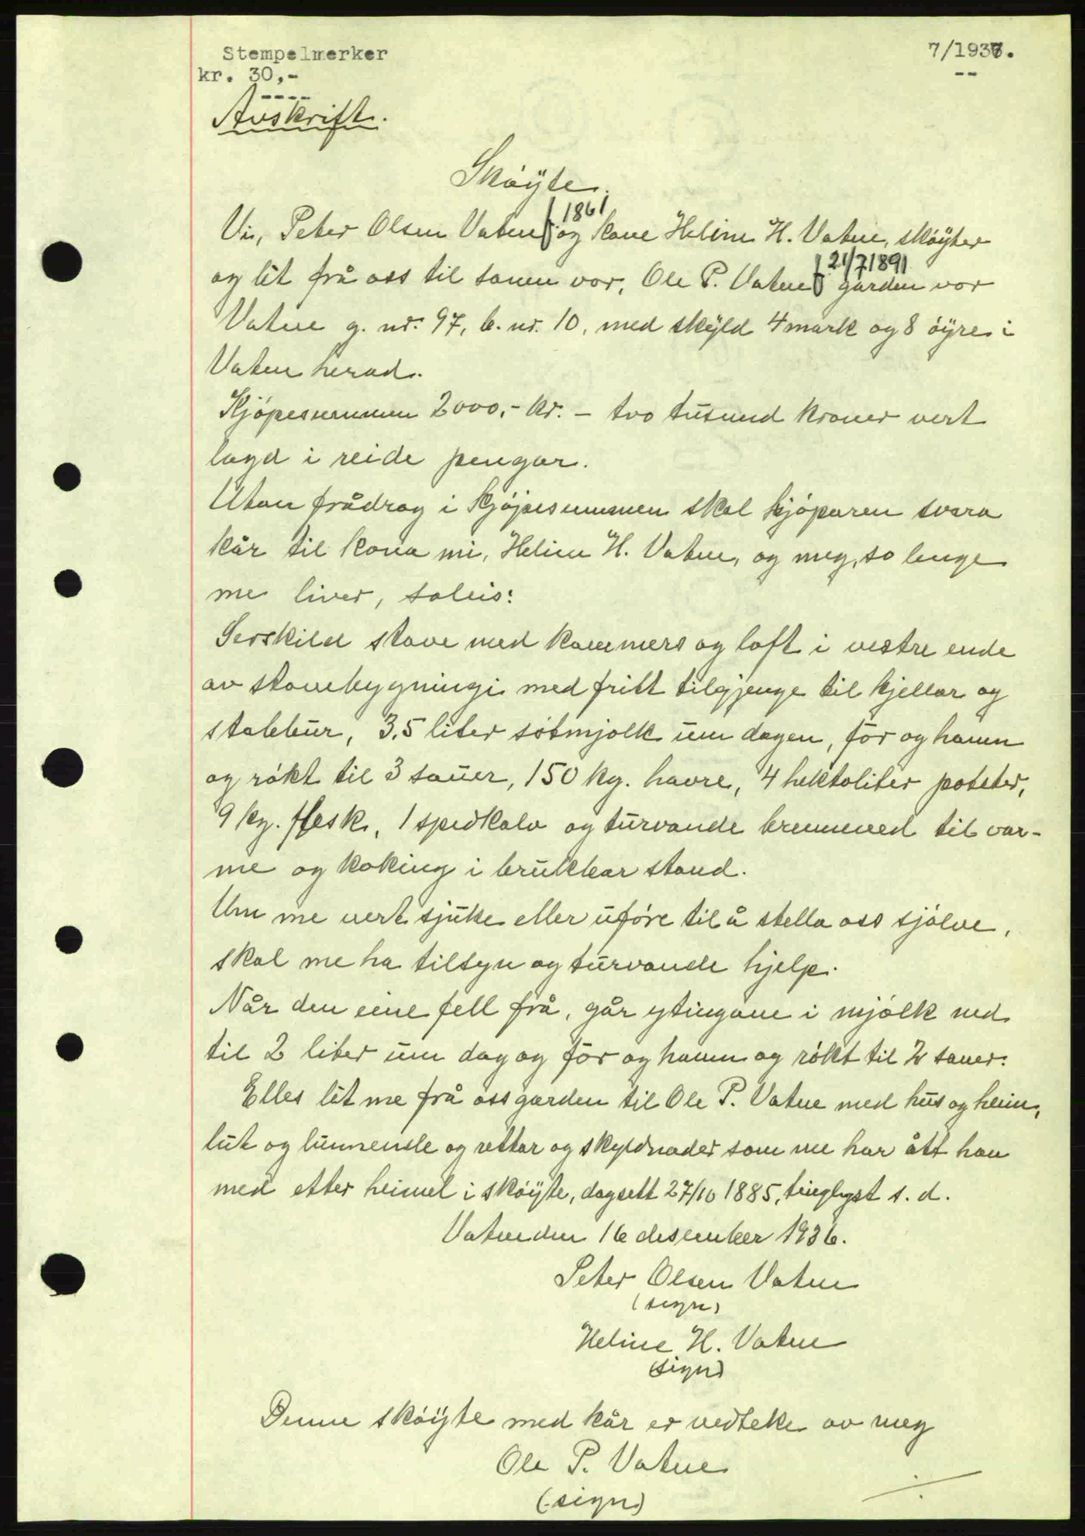 Stempelmerker
kr. 30,-
7/1937.
Avskrift.
Skøyte.
Vi, Peter Olsen Vatne f 1861 og kone Heline H. Vatne, skøyter
og lèt frå oss til sonen vor, Ole P. Vatne f 21/7 1891 garden vor
Vatne g. nr. 97, b. nr. 10, med skyld 4 mark og 8 øyre i
Vatne herad.
Kjøpesummen 2000,- kr. - tvo tusund kroner vert
lagd i reide pengar.
Utan frådrag i kjøpesummen skal kjøparen svara
kår til kona mi, Heline H. Vatne, og meg, so lenge
me liver, soleis:
Serskild stove med kammers og loft i vestre ende
av stovebygningi med fritt tilgjenge til kjellar og
stabbur, 3,5 liter søtmjølk um dagen, fòr og hamn
og røkt til 3 sauer, 150 kg. havre, 4 hektoliter poteter,
9 kg. flesk, 1 spedkalv og turvande brenneved til var-
me og koking i brukbar stand.
Um me vert sjuke eller uføre til å stella oss sjølve,
skal me ha tilsyn og turvande hjelp.
Når den eine fell frå, går ytingane i mjølk ned
til 2 liter um dag og fòr og hamn og røkt til 2 sauer.
Elles lèt me frå oss garden til Ole P. Vatne med hus og heim,
lut og lunnende og rettar og skyldnader som me har ått han
med etter heimel i skøyte, dagsett 27/10 1885, tinglyst s. d.
Vatne den 16 desember 1936.
Peter Olsen Vatne
(sign)
Heline H. Vatne
(sign)
Denne skøyte med kår er vedteke av meg
Ole P. Vatne
(sign)